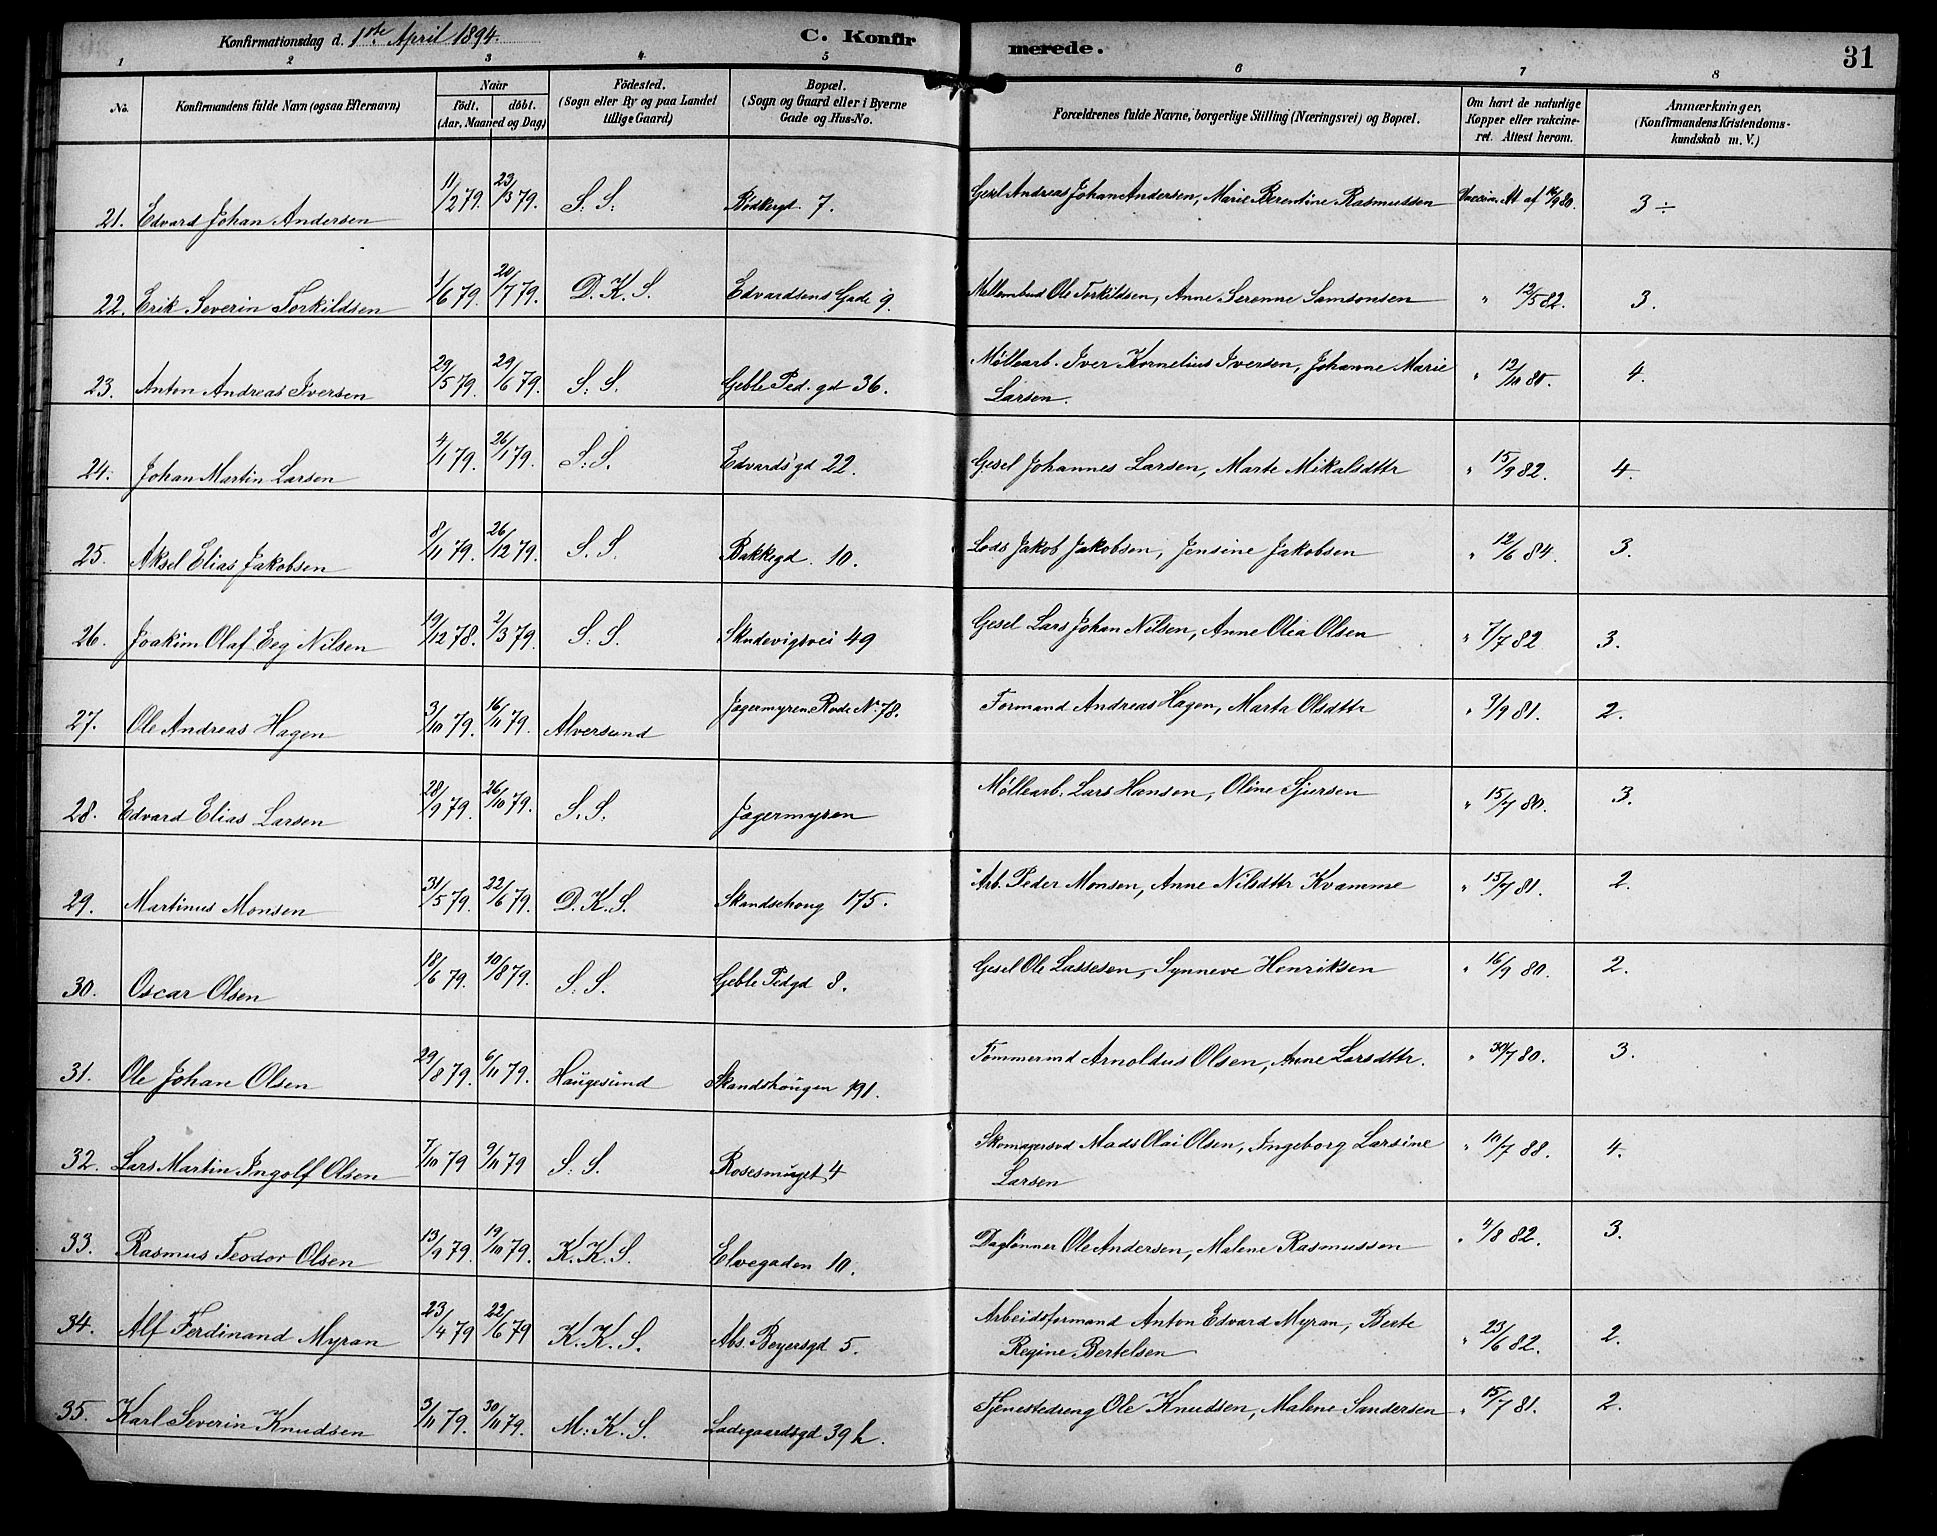 Konfirmationsdag d. 1ste April 1894. C. Konfir merede. 31
1 2 3 4 5 6 7 8
No. Konfirmandens fulde Navn (ogsaa Efternavn) Naar födt. döbt. (Aar, Maaned og Dag) Födested. (Sogn eller By og paa Landet tillige Gaard) Bopæl. (Sogn og Gaard eller i Byerne Gade og Hus-No. Forældrenes fulde Navne, borgerlige Stilling (Næringsvei) og Bopæl. Om havt de naturlige Kopper eller vakcineret. Attest herom. Anmærkninger. (Konfirmandens Kristendomskundskab m. V.)
21. Edvard Johan Andersen 11/2 79. 23/3 79. S. S. Bödkergd. 7. Gesel Andreas Johan Andersen, Marie Berentine Rasmussen Vaccin. At af 16/9 80. 3 ÷
22. Erik Severin Torkildsen 1/6 79. 20/7 79. D. K. S. Edvardsens Gade 9. Ole Torkildsen, Anne Serenne Samsonsen " 12/5 82. 3.
23. Anton Andreas Iversen 29/5 79. 29/6 79. S. S. Geble Ped. gd 36. Møllearb. Iver Kornelius Iversen, Johanne Marie " 12/10 80. 4.
Larsen.
24. Johan Martin Larsen 4/1 79. 26/1 79. S. S. Edvards'gd 22. Gesel Johannes Larsen, Marte Mikalsdttr " 15/9 82. 4.
25. Aksel Elias Jakobsen 8/11 79. 26/12 79. S. S. Bakkegd. 10. Lods Jakob Jakobsen, Jensine Jakobsen " 12/6 84. 3.
26. Joakim Olaf Eeg Nilsen 19/12 78. 2/3 79. S. S. Skudevigsvei 49 Gesel Lars Johan Nilsen, Anne Olia Olsen " 7/7 82 3.
27. Ole Andreas Hagen 3/10 79. 16/11 79. Alversund Jægermyren Rode No. 78. Formand Andreas Hagen, Marta Olsdttr " 9/9 81. 2.
28. Edvard Elias Larsen 28/9 79. 26/10 79. S. S. Jægermyren Møllearb. Lars Hansen, Oline Sjursen " 15/7 80. 3.
29. Martinus Monsen 31/5 79. 22/6 79. D. K. S. Skandsehoug 175. Arb. Peder Monsen, Anne Nilsdttr Kvamme " 15/7 81. 2.
30. Oscar Olsen 18/6 79. 10/8 79. S. S. Geble Pedgd 8. Gesel Ole Lassesen, Synneve Henriksen " 16/9 80. 2.
31. Ole Johan Olsen 29/8 79. 6/11 79. Haugesund Skandshougen 191. Tömmermd Arnoldus Olsen, Anne Larsdttr. " 30/7 80. 3.
32. Lars Martin Ingolf Olsen 7/10 79 9/11 79 S. S. Rosesmuget 4 Skomagersvd Mads Olai Olsen, Ingeborg Larsine " 10/7 88. 4.
Larsen
33. Rasmus Teodor Olsen 13/9 79. 19/10 79. K. K. S. Elvegaden 10. Daglønner Ole Andersen, Malene Rasmussen " 4/8 82. 3.
34. Alf Ferdinand Myran 23/4 79 22/6 79 K. K. S. Abs. Beyersgd 5. Arbeidsformand Anton Edvard Myran, Berte " 23/6 82. 2.
Regine Bertelsen
35. Karl Severin Knudsen 3/11 79. 30/11 79. M. K. S. Ladegaardsgd 39 h. Tjenestedreng Ole Knudsen, Malene Sandersen " 15/7 81. 2.